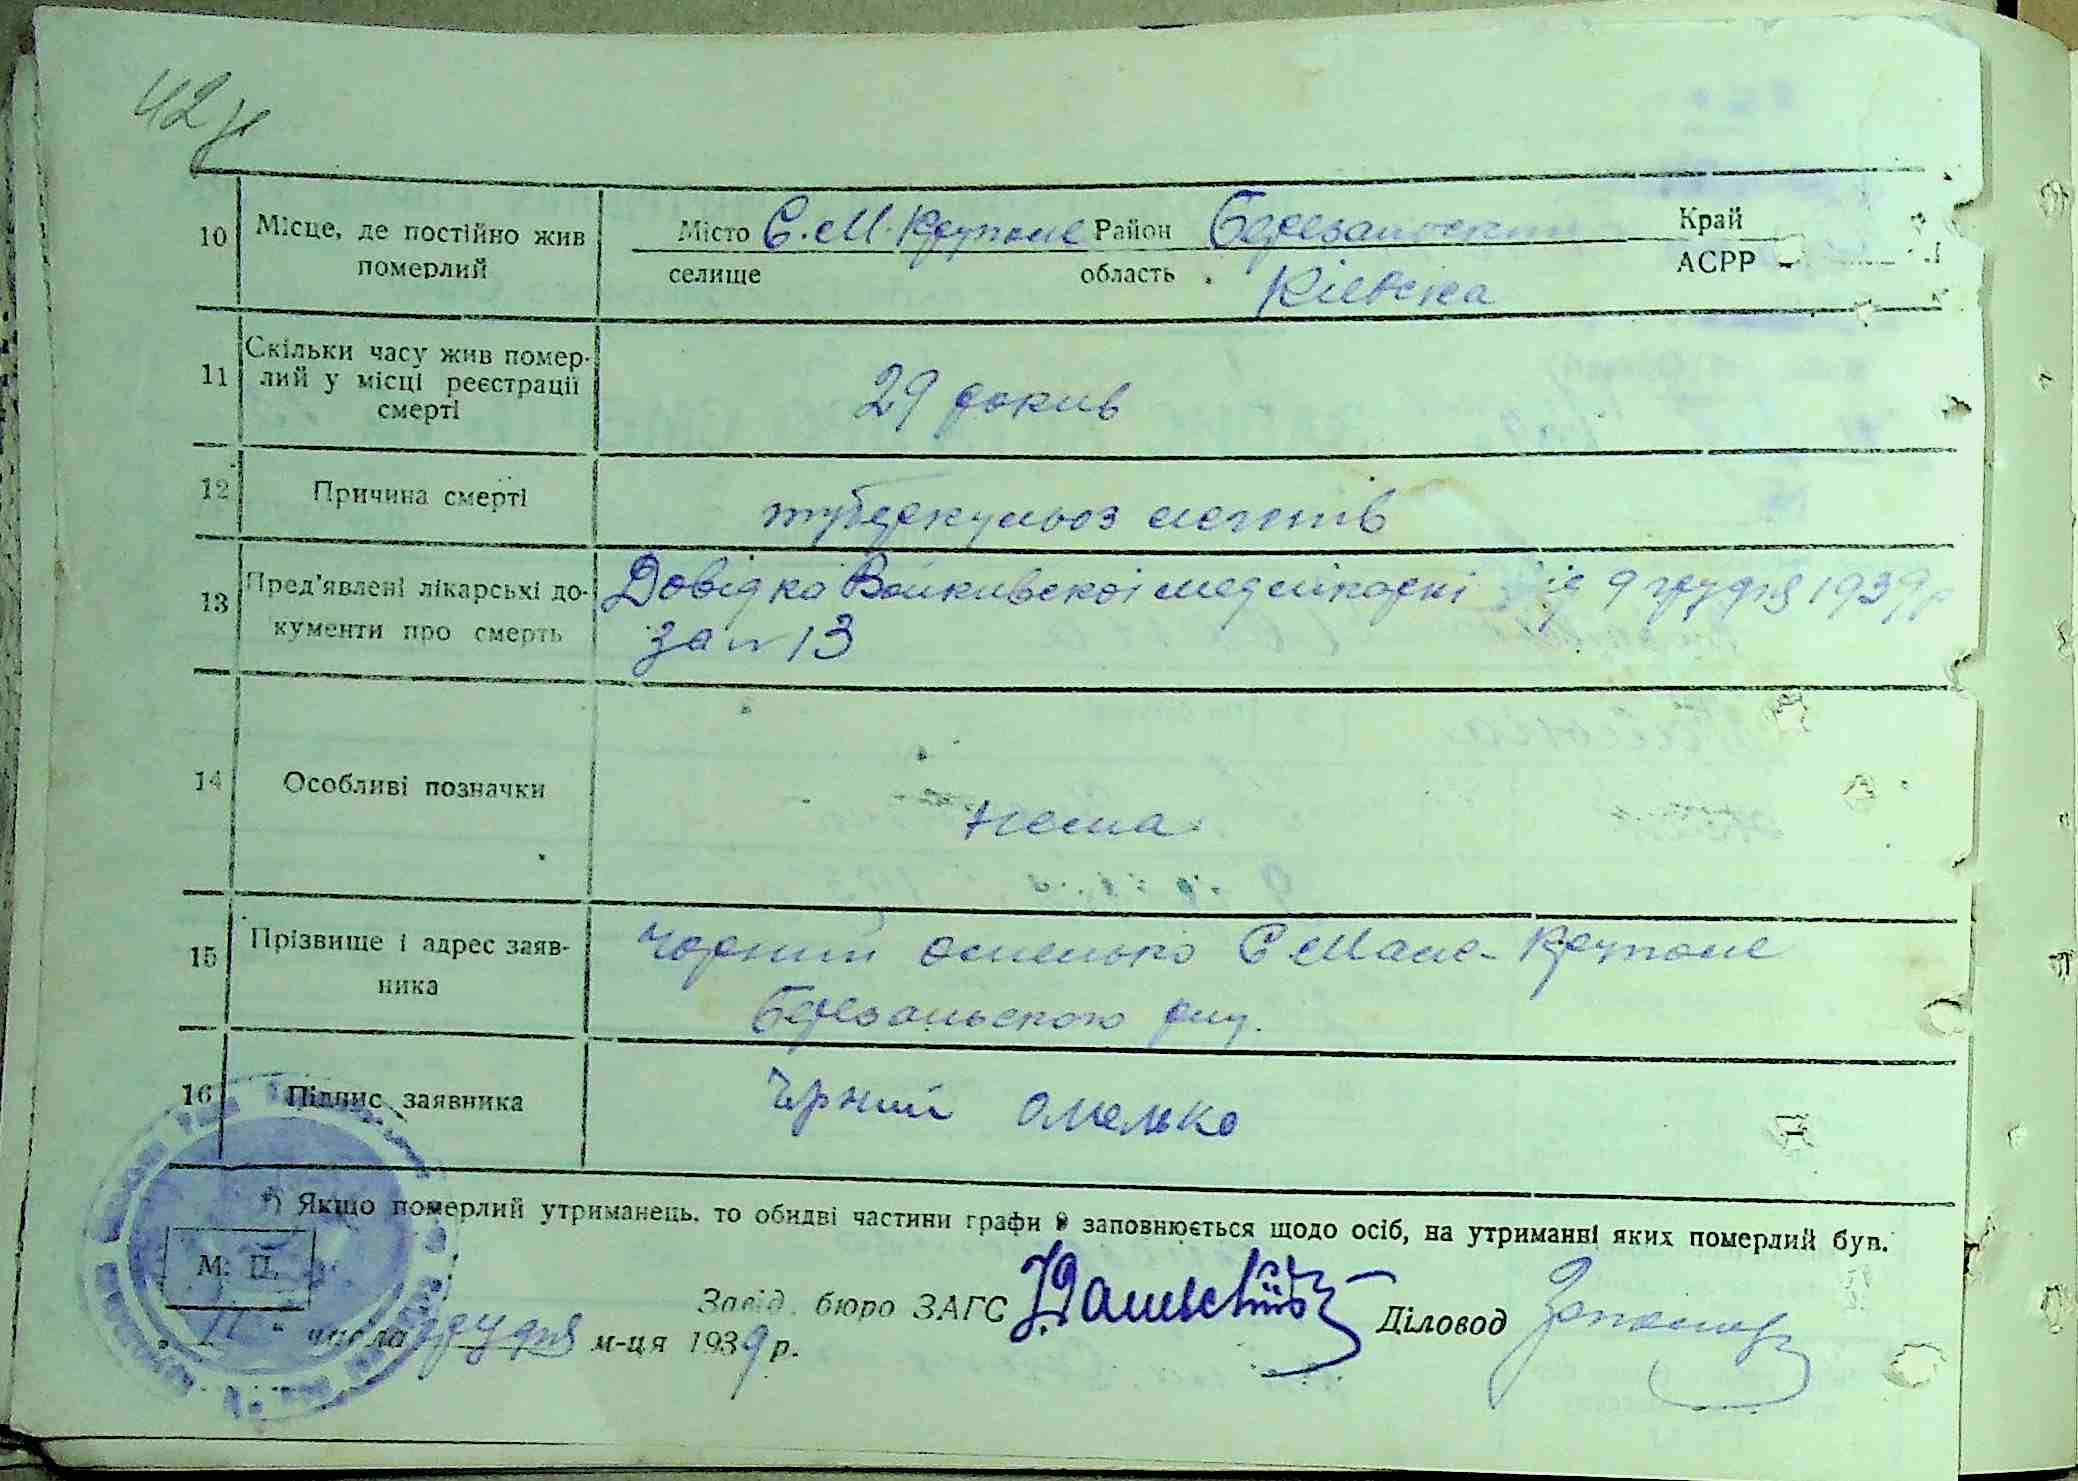 42
10 Місце, де постійно жив Місто С.М. Круполе Район Березанський Край
померлий селище область Київска АСРР -
Скільки часу жив помер-
11 лий у місці реєстрації 29 рокив
смерті
12 Причина смерті туберкульоз легенів
13 Пред'явлені лікарські до- Довідка медлікарні від 9 грудня 1939р
кументи про смерть за № 13
14 Особливі позначки Нема
15 Прізвище і адрес заяв- Чорний Омелько С Мале-Круполе
ника Березанського рну.
16 Підпис заявника Чрний Омелько
*) Якщо померлий утриманець, то обидві частини графи 9 заповнюється щодо осіб, на утриманні яких померлий був.
М. П.
Завід. бюро ЗАГС Діловод
„ 11 " числа грудня м-ця 1939 р.